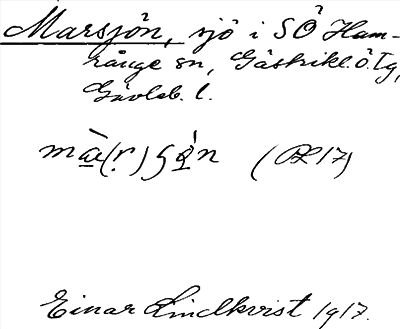 Marsjön, sjö i SÖ Ham-
rånge sn, Gästrikl. ö. Tg,
Gävleb. l.
(RL 17)
Einar Lindkvist 1917.